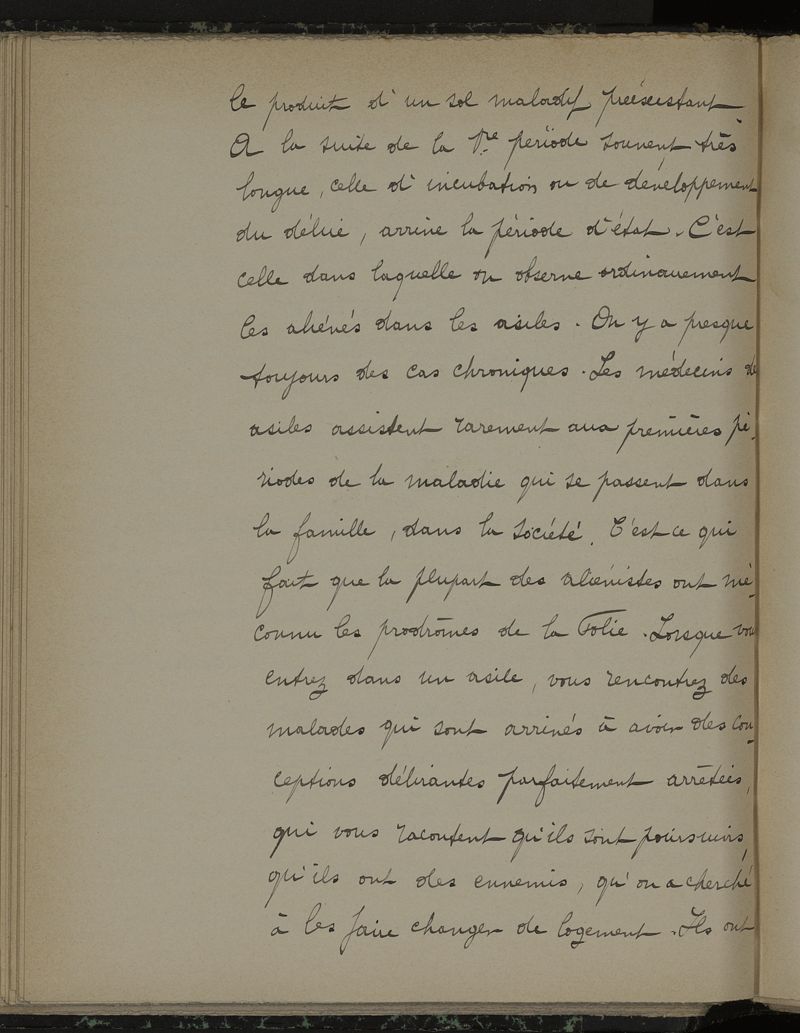 le produit d'un sol maladif préexistant
A la suite de la 1re période souvent très
longue, celle d'incubation ou de développement
du délire, arrive la période d'état. C'est
celle dans laquelle on observe ordinairement
les aliénés dans les asiles. On y a presque
toujours des cas chroniques. Les médecins de
asiles assistent rarement aux premières pé-
riodes de la maladie qui se passent dans
la famille, dans la société. C'est ce qui
fait que la plupart des aliénistes ont mé-
connu les prodrômes de la Folie. Lorsque vou
entrez dans un asile, vous rencontrez des
malades qui sont arrivés à avoir des con-
ceptions délirantes parfaitement arrêtées,
qui vous racontent qu'ils sont poursuivis,
qu'ils ont des ennemis, qu'on a cherché
à les faire changer de logement. Ils ont